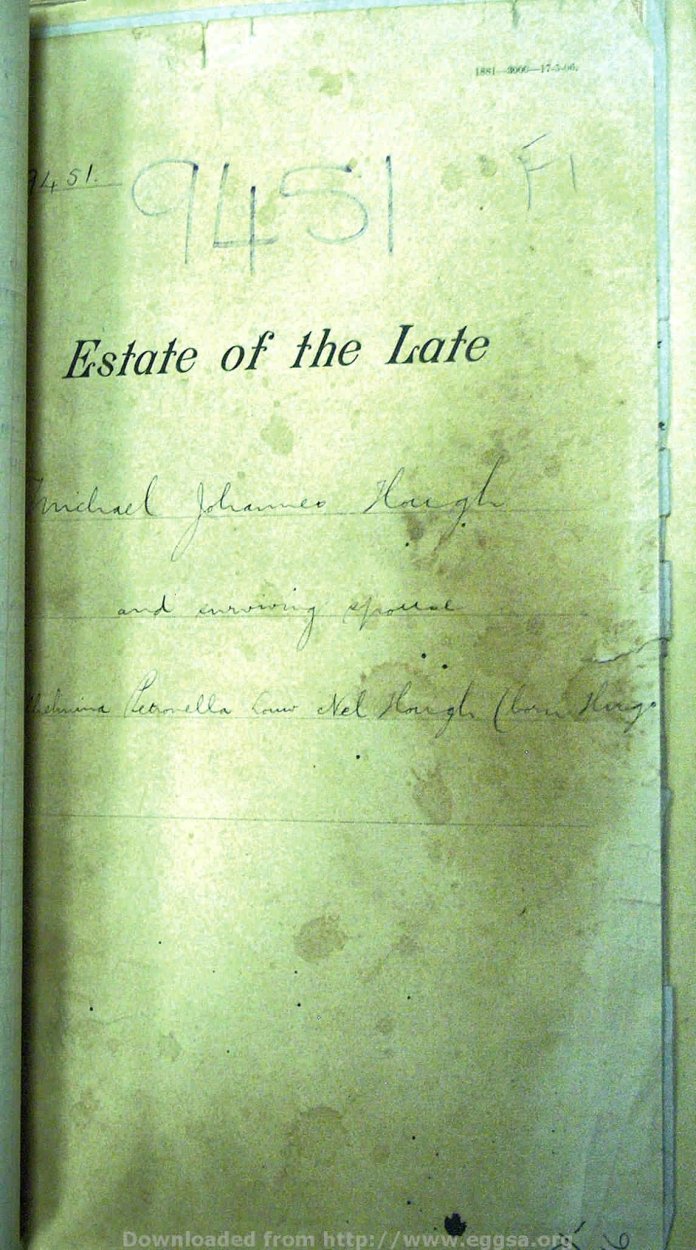 1881—3000—17-5-06.
9451.
9451 F1
Estate of the Late
Michael Johannes Hough
and surviving spouse
Petronella Louw Nel Hough (born
Downloaded from http://www.eggsa.org